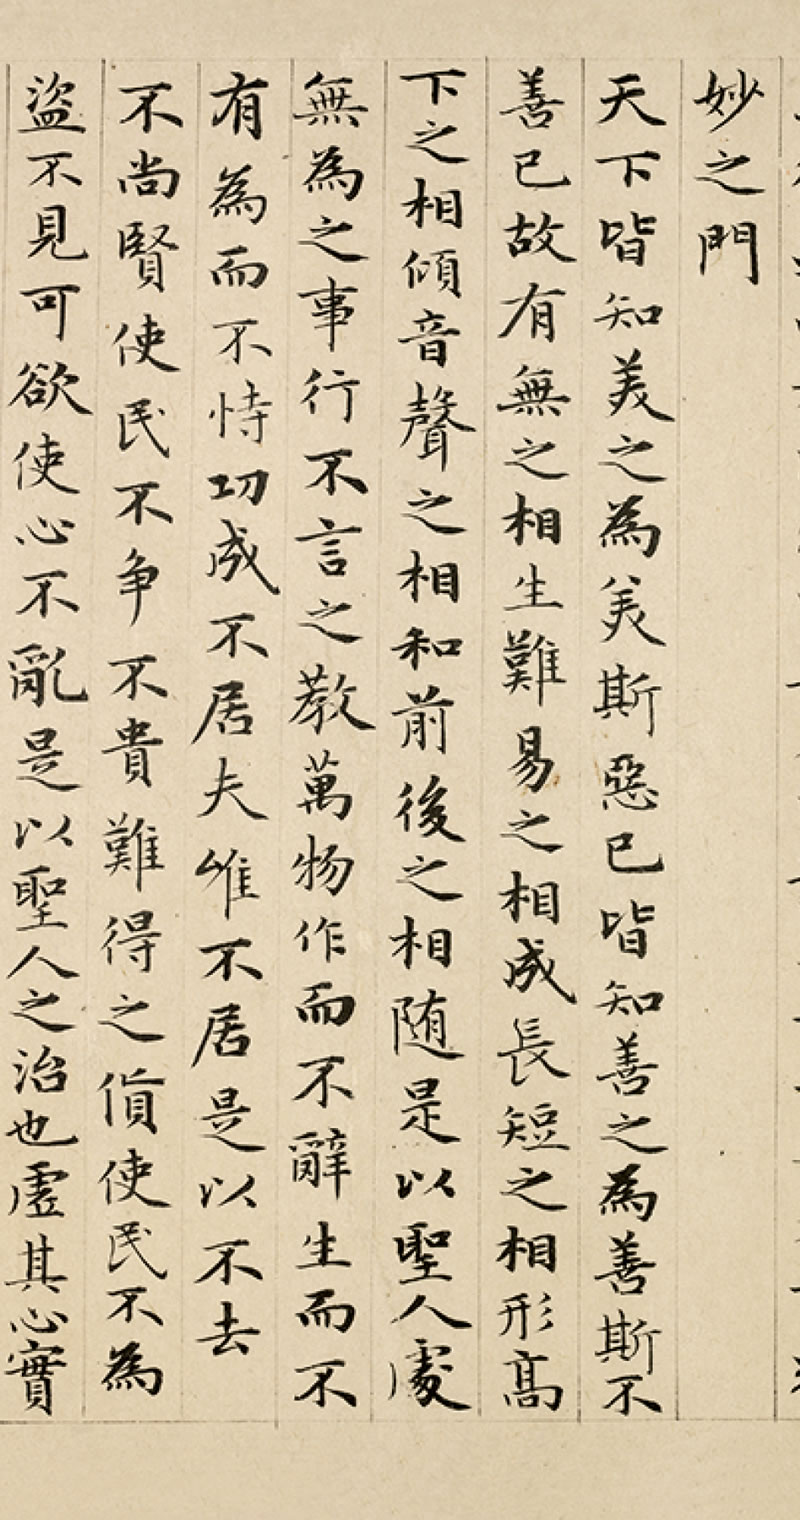 妙之門
天下皆知美之為美斯惡已皆知善之為善斯不
善已故有無之相生難易之相成長短之相形高
下之相傾音聲之相和前後之相随是以聖人處
無為之事行不言之教萬物作而不辭生而不
有為而不恃功成不居夫唯不居是以不去
不尚賢使民不争不貴難得之貨使民不為
盜不見可欲使心不亂是以聖人之治也虛其心實